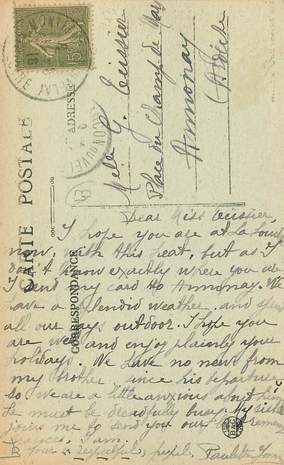 CARTE POSTALE
ADRESSE
CORRESPONDANCE
Melle G. Teissier
Place du Champ de Mars
Annonay
Ardèche
B
Dear Miss Teissier,
I hope you are at la Louve
now, with this heat, but as I
don't know exactly where you are
I send my card to Annonay. We
have a splendid weather and spend
all our days outdoor. I hope you
are well and enjoy plainly your
holidays. We have no news from
my brother since his departure
so we are a little anxious and
he must be dreadfully busy. My sister
joins me to send you our
I am
your respectful pupil. Paulette